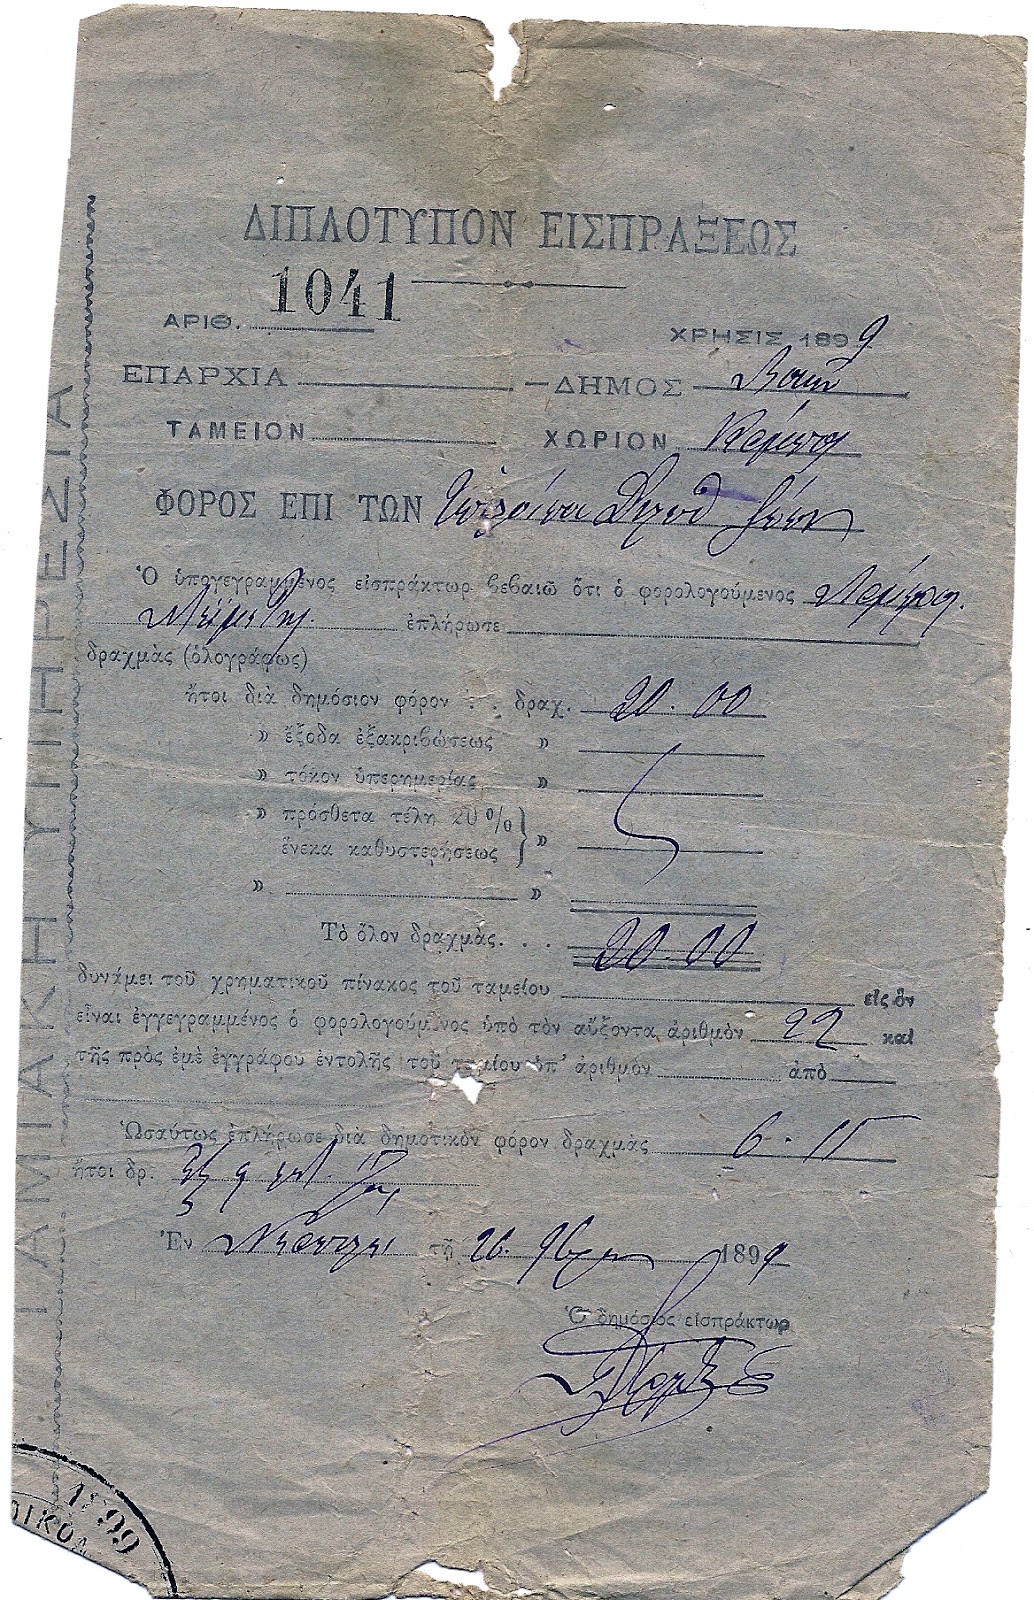 ΔΙΠΛΟΤΥΠΟΝ ΕΙΣΠΡΑΞΕΩΣ
ΑΡΙΘ. 1041
ΧΡΗΣΙΣ 1899
ΕΠΑΡΧΙΑ
ΔΗΜΟΣ
ΤΑΜΕΙΟΝ
ΧΩΡΙΟΝ
ΦΟΡΟΣ ΕΠΙ ΤΩΝ
Ὁ ὑπογεγραμμένος εἰσπράκτωρ βεβαιῶ ὅτι ὁ φορολογούμενος
ἐπλήρωσε
δραχμὰς (ὁλογράφως)
ἤτοι διὰ δημόσιον φόρον . . δραχ. 20.00
» ἔξοδα ἐξακριβώσεως »
» τόκον ὑπερημερίας »
» πρόσθετα τέλη 20 %
ἕνεκα καθυστερήσεως »
» »
Τὸ ὅλον δραχμὰς. . . 20.00
δυνάμει τοῦ χρηματικοῦ πίνακος τοῦ ταμείου εἰς ὃν
εἶναι ἐγγεγραμμένος ὁ φορολογούμενος ὑπὸ τὸν αὔξοντα ἀριθμὸν 22 καὶ
τῆς πρὸς ἐμὲ ἐγγράφου ἐντολῆς τοῦ ταμίου ὑπ' ἀριθμὸν ἀπὸ
Ὡσαύτως ἐπλήρωσε διὰ δημοτικὸν φόρον δραχμὰς 6.
ἤτοι δρ.
Ἐν τῇ 26 1899
Ὁ δημόσιος εἰσπράκτωρ
ΤΑΜΙΑΚΗ ΥΠΗΡΕΣΙΑ
1899
ΟΙΚΟΛ